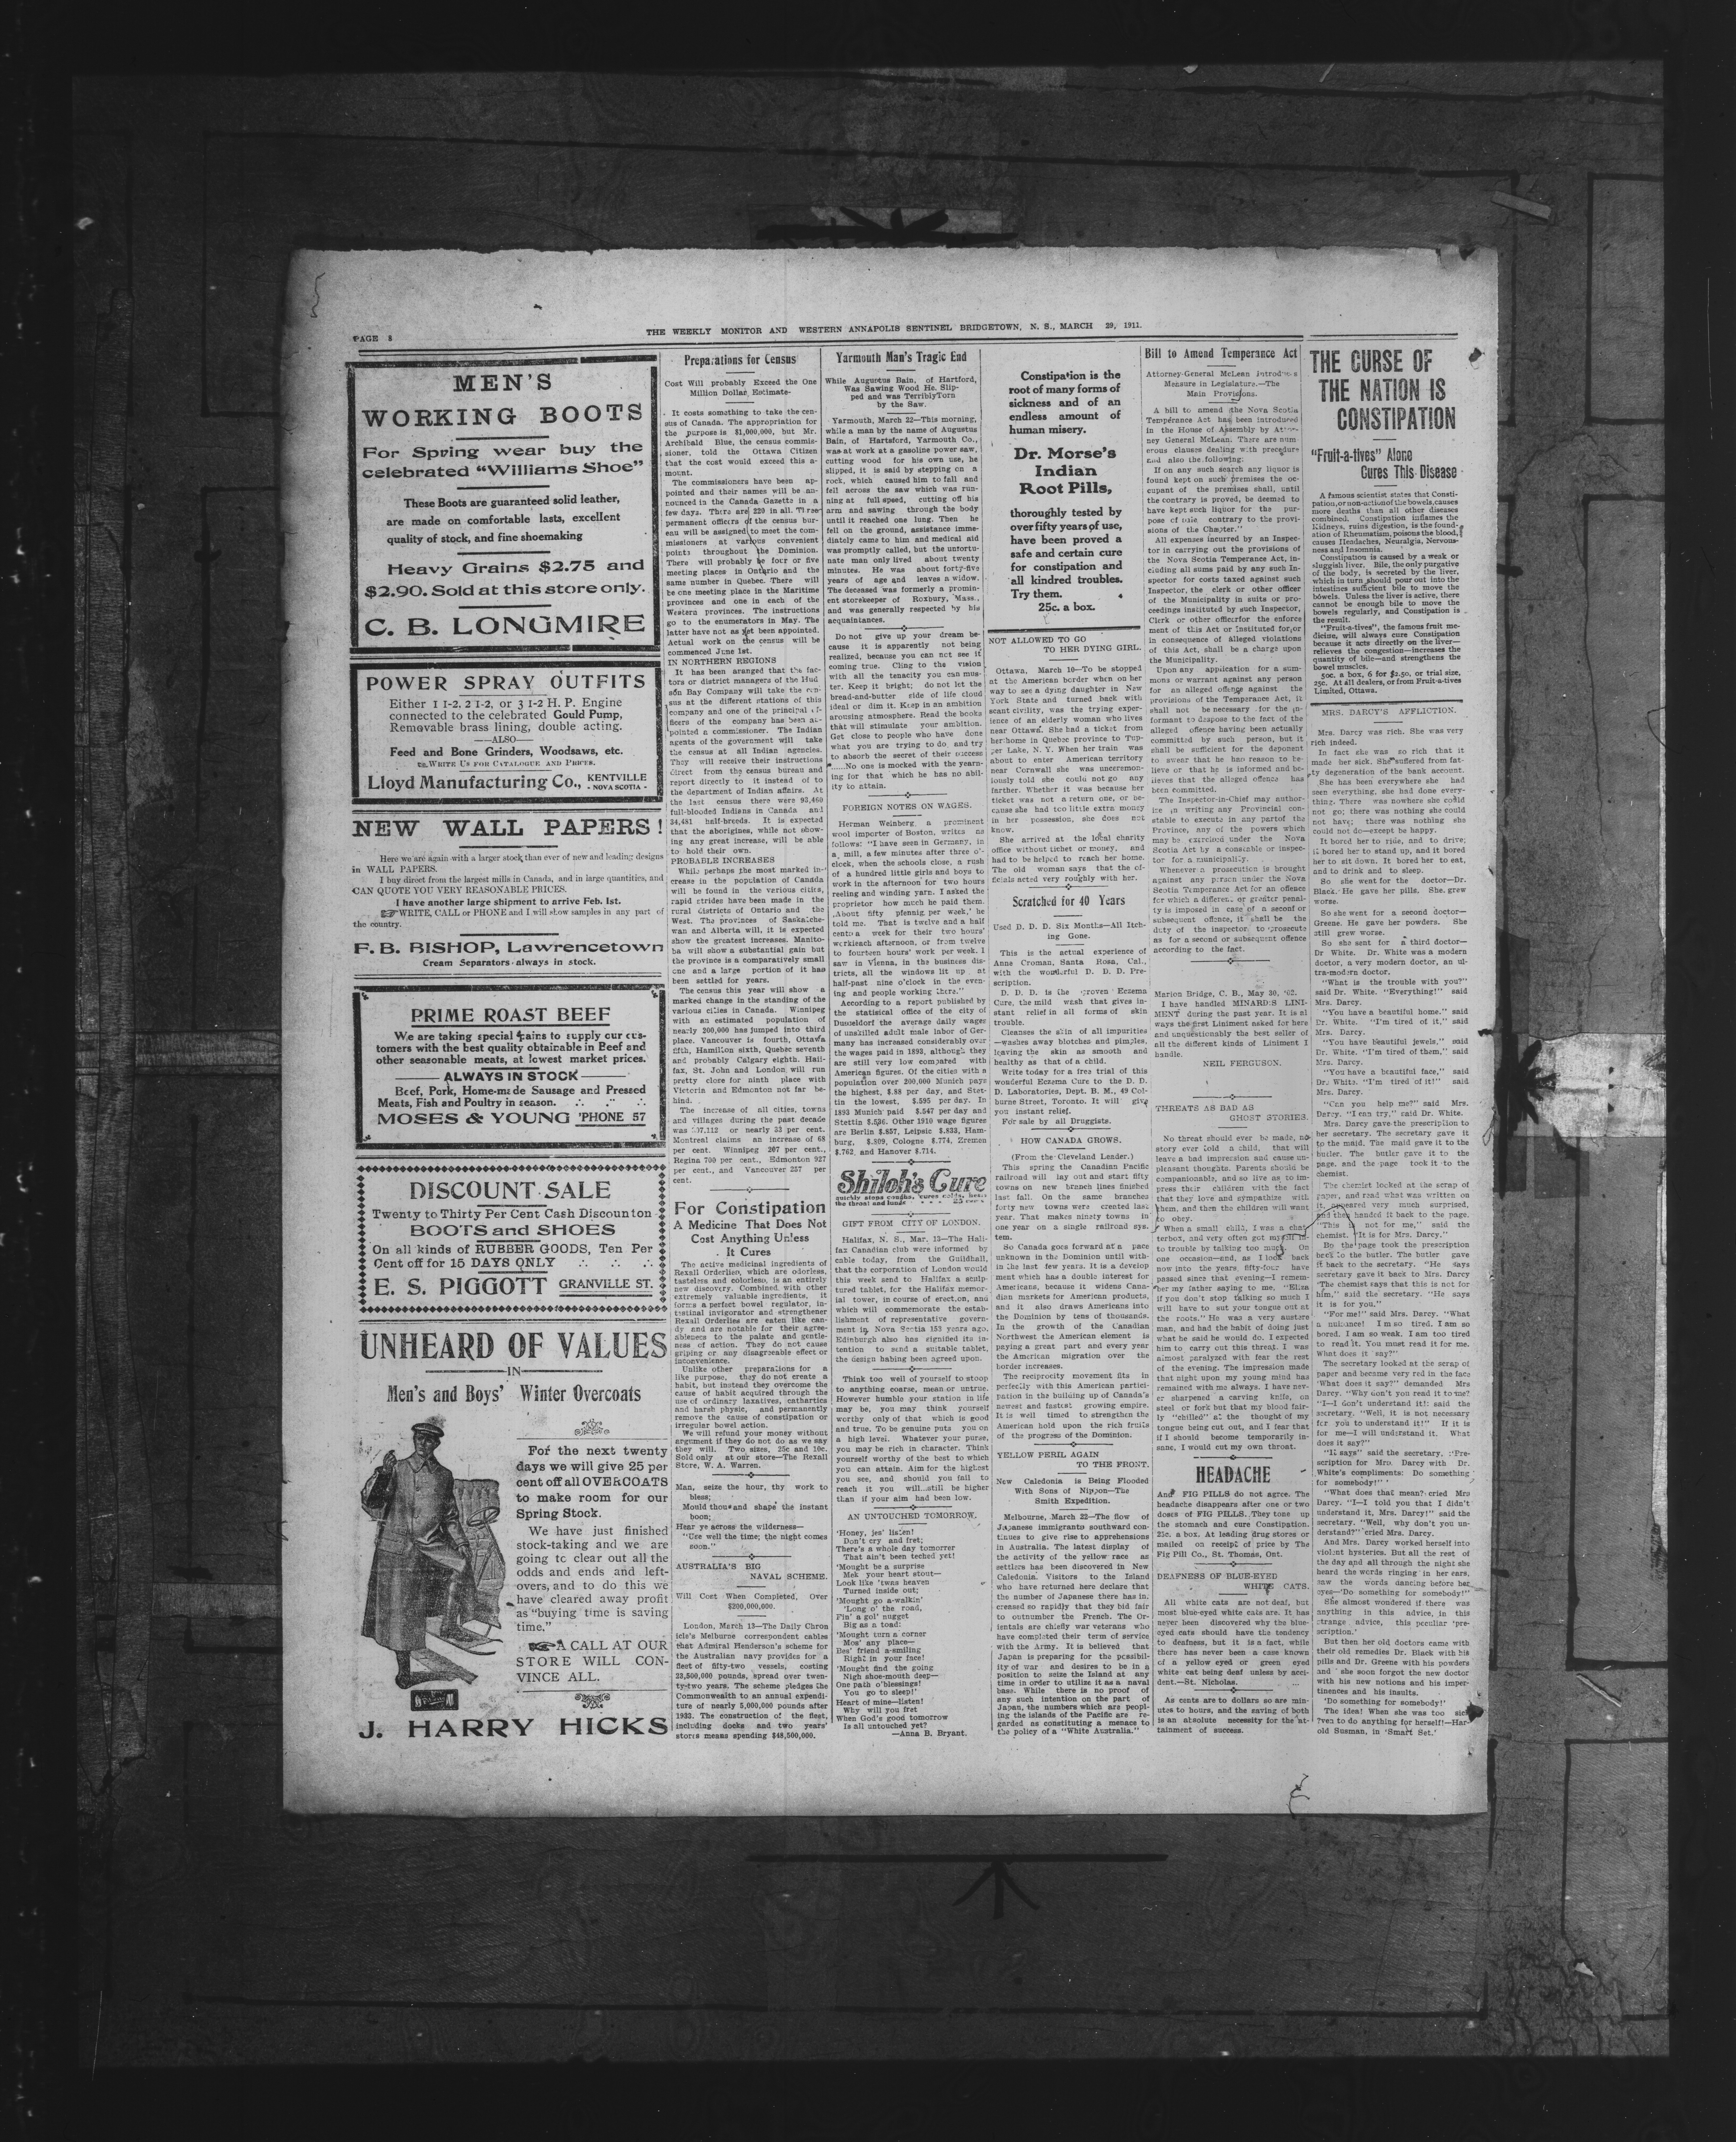 PAGE 8
THE WEEKLY MONITOR AND WESTERN ANNAPOLIS SENTINEL BRIDGETOWN, N. S., MARCH 29, 1911.
MEN'S
WORKING BOOTS
For Spring wear buy the
celebrated "Williams Shoe"
These Boots are guaranteed solid leather,
are made on comfortable lasts, excellent
quality of stock, and fine shoemaking
Heavy Grains $2.75 and
$2.90. Sold at this store only.
C. B. LONGMIRE
POWER SPRAY OUTFITS
Either 1 1-2, 2 1-2, or 3 1-2 H. P. Engine
connected to the celebrated Gould Pump,
Removable brass lining, double acting.
—ALSO—
Feed and Bone Grinders, Woodsaws, etc.
WRITE US FOR CATALOGUE AND PRICES.
Lloyd Manufacturing Co., KENTVILLE
- NOVA SCOTIA -
NEW WALL PAPERS!
Here we are again with a larger stock than ever of new and leading designs
in WALL PAPERS.
I buy direct from the largest mills in Canada, and in large quantities, and
CAN QUOTE YOU VERY REASONABLE PRICES.
I have another large shipment to arrive Feb. 1st.
WRITE, CALL or PHONE and I will show samples in any part of
the country.
F. B. BISHOP, Lawrencetown
Cream Separators always in stock.
PRIME ROAST BEEF
We are taking special pains to supply our cus-
tomers with the best quality obtainable in Beef and
other seasonable meats, at lowest market prices.
ALWAYS IN STOCK
Beef, Pork, Home-made Sausage and Pressed
Meats, Fish and Poultry in season.
MOSES & YOUNG 'PHONE 57
DISCOUNT SALE
Twenty to Thirty Per Cent Cash Discount on
BOOTS and SHOES
On all kinds of RUBBER GOODS, Ten Per
Cent off for 15 DAYS ONLY
E. S. PIGGOTT GRANVILLE ST.
UNHEARD OF VALUES
—IN—
Men's and Boys' Winter Overcoats
For the next twenty
days we will give 25 per
cent off all OVERCOATS
to make room for our
Spring Stock.
We have just finished
stock-taking and we are
going to clear out all the
odds and ends and left-
overs, and to do this we
have cleared away profit
as "buying time is saving
time."
A CALL AT OUR
STORE WILL CON-
VINCE ALL.
J. HARRY HICKS
Preparations for Census
Cost Will probably Exceed the One
Million Dollar Estimate-
It costs something to take the cen-
sus of Canada. The appropriation for
the purpose is $1,000,000, but Mr.
Archibald Blue, the census commis-
sioner, told the Ottawa Citizen
that the cost would exceed this a-
mount.
The commissioners have been ap-
pointed and their names will be an-
nounced in the Canada Gazette in a
few days. There are 220 in all. Three
permanent officers of the census bur-
eau will be assigned to meet the com-
missioners at various convenient
points throughout the Dominion.
There will probably be four or five
meeting places in Ontario and the
same number in Quebec. There will
be one meeting place in the Maritime
provinces and one in each of the
Western provinces. The instructions
go to the enumerators in May. The
latter have not as yet been appointed.
Actual work on the census will be
commenced June 1st.
IN NORTHERN REGIONS
It has been aranged that the fac-
tors or district managers of the Hud
son Bay Company will take the cen-
sus at the different stations of this
company and one of the principal of-
ficers of the company has been ap-
pointed a commissioner. The Indian
agents of the government will take
the census at all Indian agencies.
They will receive their instructions
direct from the census bureau and
report directly to it instead of to
the department of Indian affairs. At
the last census there were 93,460
full-blooded Indians in Canada and
34,481 half-breeds. It is expected
that the aborigines, while not show-
ing any great increase, will be able
to hold their own.
PROBABLE INCREASES
While perhaps the most marked in-
creas in the population of Canada
will be found in the various cities,
rapid strides have been made in the
rural districts of Ontario and the
West. The provinces of Saskatche-
wan and Alberta will, it is expected
show the greatest increases. Manito-
ba will show a substantial gain but
the province is a comparatively small
one and a large portion of it has
been settled for years.
The census this year will show a
marked change in the standing of the
various cities in Canada. Winnipeg
with an estimated population of
nearly 200,000 has jumped into third
place. Vancouver is fourth, Ottawa
fifth, Hamilton sixth, Quebec seventh
and probably Calgary eighth. Hali-
fax, St. John and London will run
pretty close for ninth place with
Victoria and Edmonton not far be-
hind.
The increase of all cities, towns
and villages during the past decade
was or nearly 33 per cent.
Montreal claims an increase of 68
per cent. Winnipeg 267 per cent.,
Regina 700 per cent., Edmonton 927
per cent., and Vancouver 287 per
cent.
For Constipation
A Medicine That Does Not
Cost Anything Unless
It Cures
The active medicinal ingredients of
Rexall Orderlies, which are odorless,
tasteless and colorless, is an entirely
new discovery. Combined with other
extremely valuable ingredients, it
forms a perfect bowel regulator, in-
testinal invigorator and strengthener
Rexall Orderlies are eaten like can-
dy and are notable for their agree-
ableness to the palate and gentle-
ness of action. They do not cause
griping or any disagreeable effect or
inconvenience.
Unlike other preparations for a
like purpose, they do not create a
habit, but instead they overcome the
cause of habit acquired through the
use of ordinary laxatives, cathartics
and harsh physic, and permanently
remove the cause of constipation or
irregular bowel action.
We will refund your money without
argument if they do not do as we say
they will. Two sizes, 25c and 10c.
Sold only at our store—The Rexall
Store, W. A. Warren.
Man, seize the hour, thy work to
bless;
Mould thousand shape the instant
boon;
Hear ye across the wilderness—
"Use well the time; the night comes
soon."
AUSTRALIA'S BIG
NAVAL SCHEME.
Will Cost When Completed, Over
$200,000,000.
London, March 13—The Daily Chron
icle's Melburne correspondent cables
that Admiral Henderson's scheme for
the Australian navy provides for a
fleet of fifty-two vessels, costing
23,500,000 pounds, spread over twen-
ty-two years. The scheme pledges the
Commonwealth to an annual expendi-
ture of nearly 5,000,000 pounds after
1933. The construction of the fleet,
including docks and two years'
stores means spending $48,500,000.
Yarmouth Man's Tragic End
While Augustus Bain, of Hartford,
Was Sawing Wood He. Slip-
ped and was TerriblyTorn
by the Saw.
Yarmouth, March 22—This morning,
while a man by the name of Augustus
Bain, of Hartsford, Yarmouth Co.,
was at work at a gasoline power saw,
cutting wood for his own use, he
slipped, it is said by stepping on a
rock, which caused him to fall and
fell across the saw which was run-
ning at full speed, cutting off his
arm and sawing through the body
until it reached one lung. Then he
fell on the ground, assistance imme-
diately came to him and medical aid
was promptly called, but the unfortu-
nate man only lived about twenty
minutes. He was about forty-five
years of age and leaves a widow.
The deceased was formerly a promin-
ent storekeeper of Roxbury, Mass.,
and was generally respected by his
acquaintances.
Do not give up your dream be-
cause it is apparently not being
realized, because you can not see it
coming true. Cling to the vision
with all the tenacity you can mus-
ter. Keep it bright; do not let the
bread-and-butter side of life cloud
ideal or dim it. Keep in an ambition
arousing atmosphere. Read the books
that will stimulate your ambition.
Get close to people who have done
what you are trying to do, and try
to absorb the secret of their success
......No one is mocked with the yearn-
ing for that which he has no abil-
ity to attain.
FOREIGN NOTES ON WAGES.
Herman Weinberg, a prominent
wool importer of Boston, writes as
follows: "I have seen in Germany, in
a mill, a few minutes after three o'-
clock, when the schools close, a rush
of a hundred little girls and boys to
work in the afternoon for two hours
reeling and winding yarn. I asked the
proprietor how much he paid them.
'About fifty pfennig per week,' he
told me. That is twelve and a half
cents a week for their two hours'
workieach afternoon, or from twelve
to fourteen hours' work per week. I
saw in Vienna, in the business dis-
tricts, all the windows lit up at
half-past nine o'clock in the even-
ing and people working there."
According to a report published by
the statisical office of the city of
Dusseldorf the average daily wages
of unskilled adult male labor of Ger-
many has increased considerably over
the wages paid in 1893, although they
are still very low compared with
American figures. Of the cities with a
population over 200,000 Munich pays
the highest, $.88 per day, and Stet-
tin the lowest, $.595 per day. In
1893 Munich paid $.547 per day and
Stettin $.536. Other 1910 wage figures
are Berlin $.857, Leipsic $.833, Ham-
burg, $.809, Cologne $.774, Bremen
$.762 and Hanover $.714.
Shiloh's Cure
quickly stops coughs, cures colds, heals
the throat and lungs 25 cents
GIFT FROM CITY OF LONDON.
Halifax, N. S., Mar. 15—The Hali-
fax Canadian club were informed by
cable today, from the Guildhall,
that the corporation of London would
this week send to Halifax a sculp-
tured tablet, for the Halifax memor-
ial tower, in course of erection, and
which will commemorate the estab-
lishment of representative govern-
ment in Nova Scotia 153 years ago.
Edinburgh also has signified its in-
tention to send a suitable tablet,
the design habing been agreed upon.
Think too well of yourself to stoop
to anything coarse, mean or untrue.
However humble your station in life
may be, you may think yourself
worthy only of that which is good
and true. To be genuine puts you on
a high level. Whatever your purse,
you may be rich in character. Think
yourself worthy of the best to which
you can attain. Aim for the highest
you see, and should you fail to
reach it you will...still be higher
than if your aim had been low.
AN UNTOUCHED TOMORROW.
'Honey, jes' listen!
Don't cry and fret;
There's a whole day tomorrer
That ain't been teched yet!
'Mought be a surprise
Mek your heart stout—
Look like 'twas heaven
Turned inside out;
'Mought go a-walkin'
'Long o' the road,
Fin' a gol' nugget
Big as a toad;
'Mought turn a corner
Mos' any place—
Bes' friend a-smiling
Right in your face!
'Mought find the going
Nigh shoe-mouth deep—
One path o'blessings!
You go to sleep!'
Heart of mine—listen!
Why will you fret
When God's good tomorrow
Is all untouched yet?
—Anna B. Bryant.
Constipation is the
root of many forms of
sickness and of an
endless amount of
human misery.
Dr. Morse's
Indian
Root Pills,
thoroughly tested by
over fifty years of use,
have been proved a
safe and certain cure
for constipation and
all kindred troubles.
Try them.
25c. a box.
NOT ALLOWED TO GO
TO HER DYING GIRL.
Ottawa, March 10—To be stopped
at the American border when on her
way to see a dying daughter in New
York State and turned back with
scant civility, was the trying exper-
ience of an elderly woman who lives
near Ottawa. She had a ticket from
her home in Quebec province to Tup-
per Lake, N. Y. When her train was
about to enter American territory
near Cornwall she was unceremon-
iously told she could not go any
farther. Whether it was because her
ticket was not a return one, or be-
cause she had too little extra money
in her possession, she does not
know.
She arrived at the local charity
office without ticket or money, and
had to be helped to reach her home.
The old woman says that the of-
ficials acted very roughly with her.
Scratched for 40 Years
Used D. D. D. Six Months—All Itch-
ing Gone.
This is the actual experience of
Anne Croman, Santa Rosa, Cal.,
with the wonderful D. D. D. Pre-
scription.
D. D. D. is the proven Eczema
Cure, the mild wash that gives in-
stant relief in all forms of skin
trouble.
Cleanses the skin of all impurities
—washes away blotches and pimples,
leaving the skin as smooth and
healthy as that of a child.
Write today for a free trial of this
wonderful Eczema Cure to the D. D.
D. Laboratories, Dept. B. M., 49 Col-
burne Street, Toronto. It will give
you instant relief.
For sale by all Druggists.
HOW CANADA GROWS.
(From the Cleveland Leader.)
This spring the Canadian Pacific
railroad will lay out and start fifty
towns on new branch lines finished
last fall. On the same branches
forty new towns were created last
year. That makes ninety towns in
one year on a single railroad sys-
tem.
So Canada goes forward at a pace
unknown in the Dominion until with-
in the last few years. It is a develop
ment which has a double interest for
Americans, because it widens Cana-
dian markets for American products,
and it also draws Americans into
the Dominion by tens of thousands.
In the growth of the Canadian
Northwest the American element is
paying a great part and every year
the American migration over the
border increases.
The reciprocity movement fits in
perfectly with this American partici-
pation in the building up of Canada's
newest and fastest growing empire.
It is well timed to strengthen the
American hold upon the rich fruits
of the progress of the Dominion.
YELLOW PERIL AGAIN
TO THE FRONT.
New Caledonia is Being Flooded
With Sons of Nippon—The
Smith Expedition.
Melbourne, March 22—The flow of
Japanese immigrants southward con-
tinues to give rise to apprehensions
in Australia. The latest display of
the activity of the yellow race as
settlers has been discovered in New
Caledonia. Visitors to the Island
who have returned here declare that
the number of Japanese there has in-
creased so rapidly that they bid fair
to outnumber the French. The Or-
ientals are chiefly war veterans who
have completed their term of service
with the Army. It is believed that
Japan is preparing for the possibil-
ity of war and desires to be in a
position to seize the Island at any
time in order to utilize it as a naval
base. While there is no proof of
any such intention on the part of
Japan, the numbers which are peopl-
ing the islands of the Pacific are re-
garded as constituting a menace to
the policy of a "White Australia."
Bill to Amend Temperance Act
Attorney-General McLean Introduces
Measure in Legislature.—The
Main Provisions.
A bill to amend the Nova Scotia
Temperance Act has been introduced
in the House of Assembly by Attor-
ney General McLean. There are num
erous clauses dealing with precedure
and also the following:
If on any such search any liquor is
found kept on such premises the oc-
cupant of the premises shall, until
the contrary is proved, be deemed to
have kept such liquor for the pur-
pose of sale contrary to the provi-
sions of the Chapter."
All expenses incurred by an Inspec-
tor in carrying out the provisions of
the Nova Scotia Temperance Act, in-
cluding all sums paid by any such In-
spector for costs taxed against such
Inspector, the clerk or other officer
of the Municipality in suits or pro-
ceedings instituted by such Inspector,
Clerk or other officerfor the enforce
ment of this Act or instituted for,or
in consequence of alleged violations
of this Act, shall be a charge upon
the Municipality.
Upon any application for a sum-
mons or warrant against any person
for an alleged offense against the
provisions of the Temperance Act, it
shall not be necessary for the in-
formant to despose to the fact of the
alleged offence having been actually
committed by such person, but it
shall be sufficient for the deponent
to swear that he has reason to be-
lieve or that he is informed and be-
lieves that the alleged offence has
been committed.
The Inspector-in-Chief may author-
ize in writing any Provincial con-
stable to execute in any partof the
Province, any of the powers which
may be exercised under the Nova
Scotia Act by a constable or inspec-
tor for a municipality.
Whenever a prosecution is brought
against any person under the Nova
Scotia Temperance Act for an offence
for which a different or greater penal-
ty is imposed in case of a second or
subsequent offence, it shall be the
duty of the inspector to prosecute
as for a second or subsequent offence
according to the fact.
Marion Bridge, C. B., May 30, '02.
I have handled MINARD'S LINI-
MENT during the past year. It is al
ways the first Liniment asked for here
and unquestionably the best seller of
all the different kinds of Liniment I
handle.
NEIL FERGUSON.
THREATS AS BAD AS
GHOST STORIES.
No threat should ever be made, no
story ever told a child, that will
leave a bad impression and cause un-
pleasant thoughts. Parents should be
companionable, and so live as to im-
press their children with the fact
that they love and sympathize with
them, and then the children will want
to obey.
When a small child, I was a chat
terbox, and very often got myself in-
to trouble by talking too much. On
one occasion—and, as I look back
now into the years, fifty-four have
passed since that evening—I remem-
ber my father saying to me, "Eliza
if you don't stop talking so much I
will have to cut your tongue out at
the roots." He was a very austere
man, and had the habit of doing just
what he said he would do. I expected
him to carry out this threat. I was
almost paralyzed with fear the rest
of the evening. The impression made
that night upon my young mind has
remained with me always. I have nev-
er sharpened a carving knife, on
steel or fork but that my blood fair-
ly "chilled" at the thought of my
tongue being cut out, and I fear that
if I should become temporarily in-
sane, I would cut my own throat.
HEADACHE
And FIG PILLS do not agree. The
headache disappears after one or two
doses of FIG PILLS. They tone up
the stomach and cure Constipation.
25c. a box. At leading drug stores or
mailed on receipt of price by The
Fig Pill Co., St. Thomas, Ont.
DEAFNESS OF BLUE-EYED
WHITE CATS.
All white cats are not deaf, but
most blue-eyed white cats are. It has
never been discovered why the blue-
eyed cats should have the tendency
to deafness, but it is a fact, while
there has never been a case known
of a yellow eyed or green eyed
white cat being deaf unless by acci-
dent.—St. Nicholas.
As cents are to dollars so are min-
utes to hours, and the saving of both
is an absolute necessity for the at-
tainment of success.
THE CURSE OF
THE NATION IS
CONSTIPATION
"Fruit-a-tives" Alone
Cures This Disease
A famous scientist states that Consti-
pation, or non-action of the bowels, causes
more deaths than all other diseases
combined. Constipation inflames the
Kidneys, ruins digestion, is the found-
ation of Rheumatism, poisons the blood,
causes Headaches, Neuralgia, Nervous-
ness and Insomnia.
Constipation is caused by a weak or
sluggish liver. Bile, the only purgative
of the body, is secreted by the liver,
which in turn should pour out into the
intestines sufficient bile to move the
bowels. Unless the liver is active, there
cannot be enough bile to move the
bowels regularly, and Constipation is
the result.
"Fruit-a-tives", the famous fruit me-
dicine, will always cure Constipation
because it acts directly on the liver—
relieves the congestion—increases the
quantity of bile—and strengthens the
bowel muscles.
50c. a box, 6 for $2.50, or trial size,
25c. At all dealers, or from Fruit-a-tives
Limited, Ottawa.
MRS. DARCY'S AFFLICTION.
Mrs. Darcy was rich. She was very
rich indeed.
In fact she was so rich that it
made her sick. She suffered from fat-
ty degeneration of the bank account.
She has been everywhere she had
seen everything, she had done every-
thing. There was nowhere she could
not go; there was nothing she could
not have; there was nothing she
could not do—except be happy.
It bored her to ride, and to drive;
it bored her to stand up, and it bored
her to sit down. It bored her to eat,
and to drink and to sleep.
So she went for the doctor—Dr.
Black. He gave her pills. She. grew
worse.
So she went for a second doctor—
Greene. He gave her powders. She
still grew worse.
So she sent for a third doctor—
Dr White. Dr. White was a modern
doctor, a very modern doctor, an ul-
tra-modern doctor.
"What is the trouble with you?"
said Dr. White. "Everything!" said
Mrs. Darcy.
"You have a beautiful home." said
Dr. White. "I'm tired of it," said
Mrs. Darcy.
"You have beautiful jewels," said
Dr. White. "I'm tired of them," said
Mrs. Darcy.
"You have a beautiful face," said
Dr. White. "I'm tired of it!" said
Mrs. Darcy.
"Can you help me?" said Mrs.
Darcy. "I can try," said Dr. White.
Mrs. Darcy gave the prescription to
her secretary. The secretary gave it
to the maid. The maid gave it to the
butler. The butler gave it to the
page, and the page took it to the
chemist.
The chemist looked at the scrap of
paper, and read what was written on
it, appeared very much surprised,
and then handed it back to the page.
"This is not for me," said the
chemist. "It is for Mrs. Darcy."
So the page took the prescription
back to the butler. The butler gave
it back to the secretary. "He says
secretary gave it back to Mrs. Darcy
'The chemist says that this is not for
him,'' said the secretary. "He says
it is for you."
"For me!" said Mrs. Darcy. "What
a nuisance! I m so tired. I am so
bored. I am so weak. I am too tired
to read it. You must read it for me.
What does it say?"
The secretary looked at the scrap of
paper and became very red in the face
"What does it say?" demanded Mrs
Darcy. "Why don't you read it to me?
"I—I don't understand it!; said the
secretary. "Well, it is not necessary
for you to understand it!" If it is
for me—I will understand it. What
does it say?"
"It says" said the secretary. "'Pre-
scription for Mrs. Darcy with Dr.
White's compliments: Do something
for somebody!' '
"What does that mean? cried Mrs
Darcy. "I—I told you that I didn't
understand it, Mrs. Darcy!" said the
secretary. "Well, why don't you un-
derstand?" cried Mrs. Darcy.
And Mrs. Darcy worked herself into
violent hysterics. But all the rest of
the day and all through the night she
heard the words ringing in her ears,
saw the words dancing before her
eyes—'Do something for somebody!''
She almost wondered if there was
anything in this advice, in this
strange advice, this peculiar 'pre-
scription.'
But then her old doctors came with
their old remedies Dr. Black with his
pills and Dr. Greene with his powders
and she soon forgot the new doctor
with his new notions and his imper-
tinences and his insults.
'Do something for somebody!'
The idea! When she was too sick
even to do anything for herself!—Har-
old Susman, in 'Smart Set.'